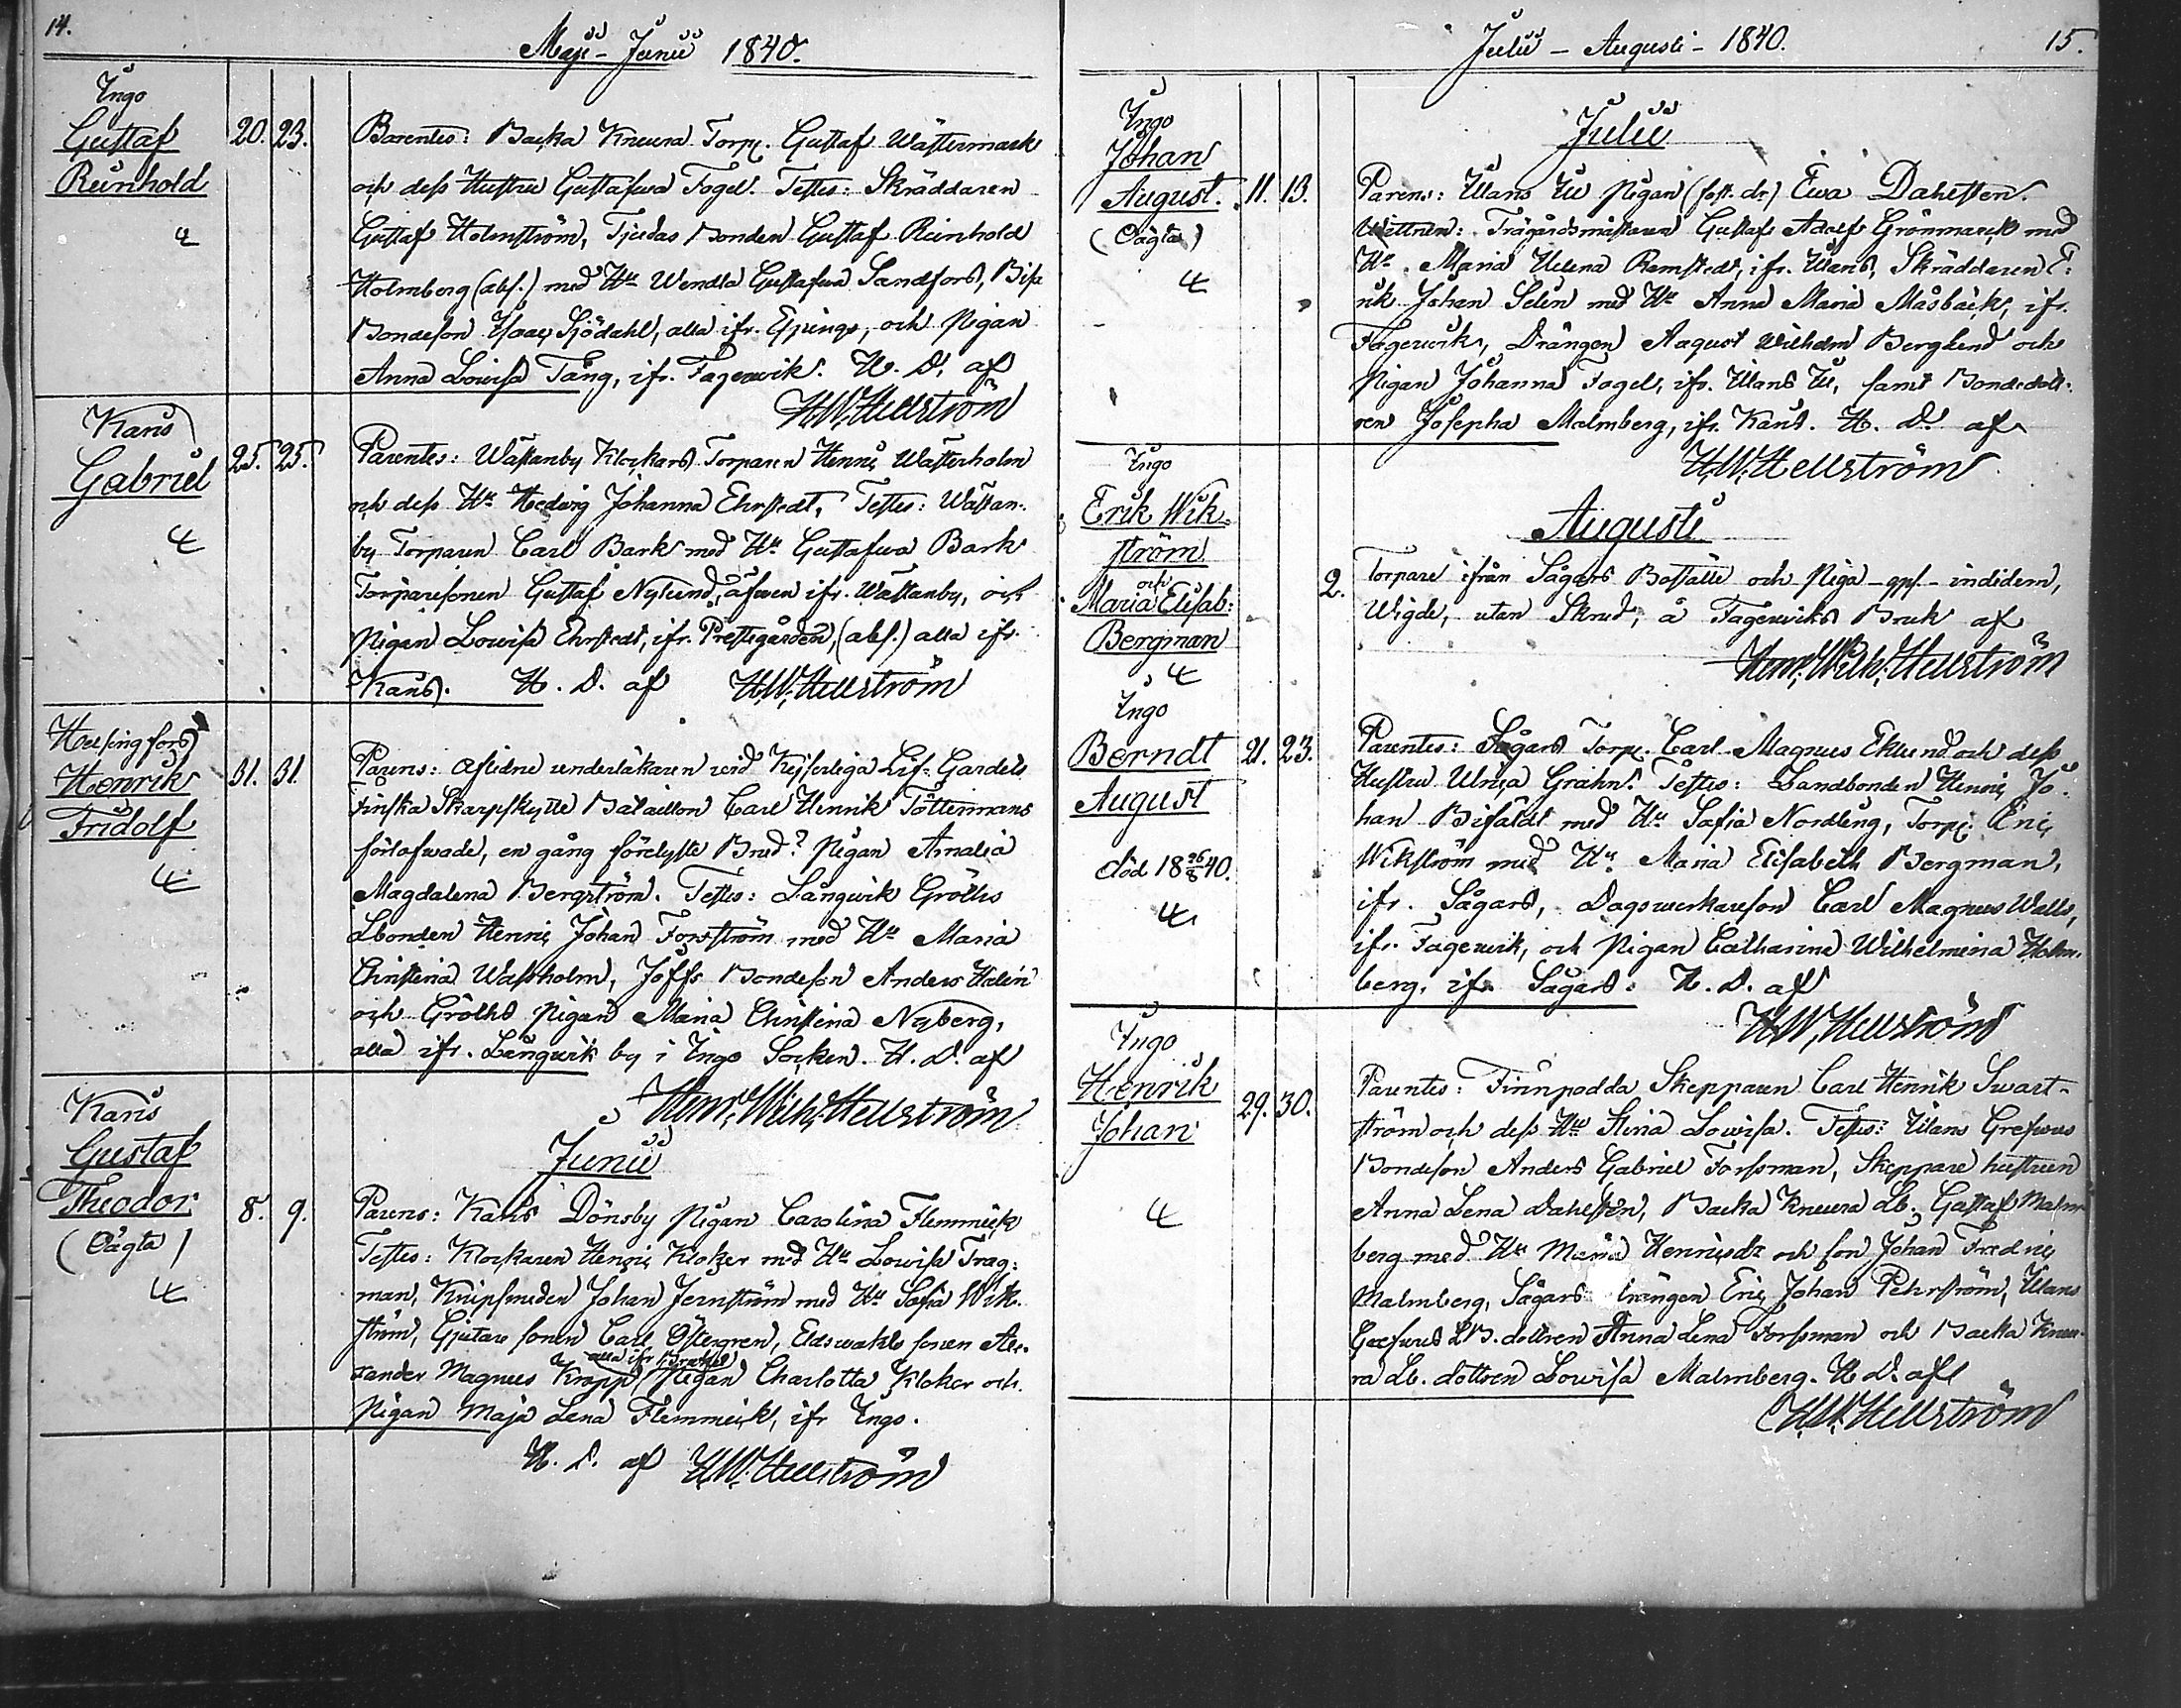 14.
Maji - Junii 1840.
Ingo
Gustaf
Reinhold
20. 23.
Parentes: Backa Kneuera Torp. Gustaf Wästermark
och dess Hustru Gustafwa Fogel. Testes: Skräddaren
Gustaf Holmström, Tjudas Bonden Gustaf Reinhold
Holmberg (abs.) med Hu Wendla Gustafwa Sandfors,
Bondeson Isaac Sjödahl, alla ifr. Espings, och Pigan
Anna Lovisa Tång, ifr. Fagervik. H. D. af
H.W. Hellström
Karis
Gabriel
25. 25.
Parentes: Wästanby Klockars Torparen Henric Wästerholm
och dess Hu Hedvig Johanna Ehrstedt, Testes: Wästan-
by Torparen Carl Bark med Hu Gustafwa Bark
Torparesonen Gustaf Nylund, äfwen ifr. Wästanby, och
Pigan Lovisa Ehrstedt, ifr. Prestegården, (abs.) alla ifr.
Karis. H. D. af H.W. Hellström
Helsingfors
Henrik
Fridolf
31. 31.
Parens: Aflidne underläkaren vid Kejserliga Lif-Gardets
Finska Skarpskytte Bataillon Carl Henrik Töttermans
förlofwade, en gång förelyste Brud? Pigan Amalia
Magdalena Bergström. Testes: Långvik Grölls
Lbonden Henric Johan Forsström med Hu Maria
Christina Wassholm, Joffs Bondeson Anders Halin
och Grölls Pigan Maria Christina Nyberg,
alla ifr. Långvik by i Ingo Socken. H. D. af
Henr. Wilh. Hellström
Junii
Karis
Gustaf
Theodor
(Oägta)
8. 9.
Parens: Karis Dönsby Pigan Carolina Flemmick
Testes: Klockaren Henric Kloker med Hu Lovisa Frag-
man, Knipsmeden Johan Jernström med Hu Sofia Wik-
ström, Gjutare sonen Carl Östergren, Eldswakts sonen Alex-
alla ifr Bruket
ander Magnus Kropp, Pigan Charlotta Kloker och
Pigan Maja Lena Flemmick, ifr Ingo.
H. D. af H.W. Hellström
Julii - Augusti - 1840. 15.
Julii
Ingo
Johan
August.
(Oägta)
11. 13.
Parens: Illans Pigan Ewa Dahlsten.
Wittnen: Trägårdsmästaren Gustaf Adolf Grönmarck med
Hu. Maria Helena Ramstedt, ifr. Illans, Skräddaren E-
rik Johan Selin med Hu Anna Maria Måsback, ifr.
Fagervik, Drängen August Wilhelm Berglund och
Pigan Johanna Fagel, ifr. Illans samt Bondedott-
ren Josepha Malmberg, ifr. Karis. H. D. af
H.W. Hellström
Augusti
Ingo
Erik Wik-
ström
och
Maria Elisab:
Bergman
2.
Torpare ifrån Sågars Boställe och Piga - qps. - indidem,
Wigde, utan Skrud, å Fagerviks Bruk af
Henr. Wilh. Hellström
Ingo
Berndt
August
död 18 26/8 40.
21. 23.
Parentes: Sågars Torp. Carl Magnus Eklund och dess
Hustru Ulrica Grahn. Testes: Landbonden Henric Jo-
han Bifäldt med Hu Sofia Nordling, Torp. Eric
Wikström med Hu Maria Elisabeth Bergman,
ifr. Sågars, Dagsverkareson Carl Magnus Walls,
ifr. Fagervik, och Pigan Catharina Wilhelmina Holm-
berg, ifr. Sågars. H. D. af
H.W. Hellström
Ingo
Henrik
Johan
29. 30.
Parentes: Finnpadda Skepparen Carl Henrik Swart-
ström och dess Hu Stina Lovisa. Testes: Illans Grefwas
Bondeson Anders Gabriel Forssman, Skeppare hustrun
Anna Lena Dahlsten, Backa Kneuera Lb. Gustaf Malm
berg med Hu Maria Henricsdr och son Johan Fredric
Malmberg, Sågars Drängen Eric Johan Pehrström, Illans
Grefwas LB. dottren Anna Lena Forssman och Backa Kneue-
ra Lb. dottren Lovisa Malmberg. H. D. af
H.W. Hellström